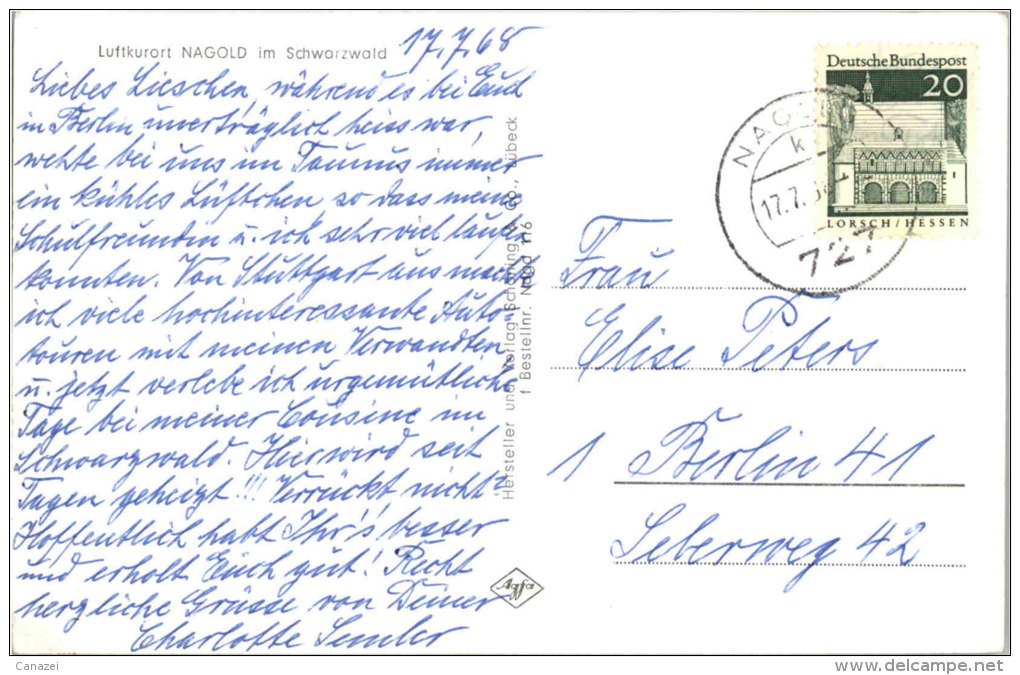 Luftkurort NAGOLD im Schwarzwald
17.7.68
Liebes Lieschen, während es bei Euch
in Berlin unerträglich heiss war,
wehte bei uns im Taunus immer
ein kühles Lüftchen so dass meine
Schulfreundin u. ich sehr viel laufen
konnten. Von Stuttgart aus machte
ich viele hochinteressante Auto-
touren mit meinen Verwandten
u. jetzt verlebe ich urgemütliche
Tage bei meiner Cousine im
Schwarzwald. Hier wird seit
Tagen geheizt!!! Verrückt nicht?
Hoffentlich habt Ihr's besser
und erholt Euch gut! Recht
herzliche Grüsse von Deiner
Charlotte Semler
Hersteller und Verlag Schöning & Co., Lübeck
f Bestellnr. Nagd 116
Agfa
Deutsche Bundespost
20
LORSCH/HESSEN
17.7.
727
Frau
Elise Peters
1 Berlin 41
Leberweg 42
Canazei
www.delcampe.net